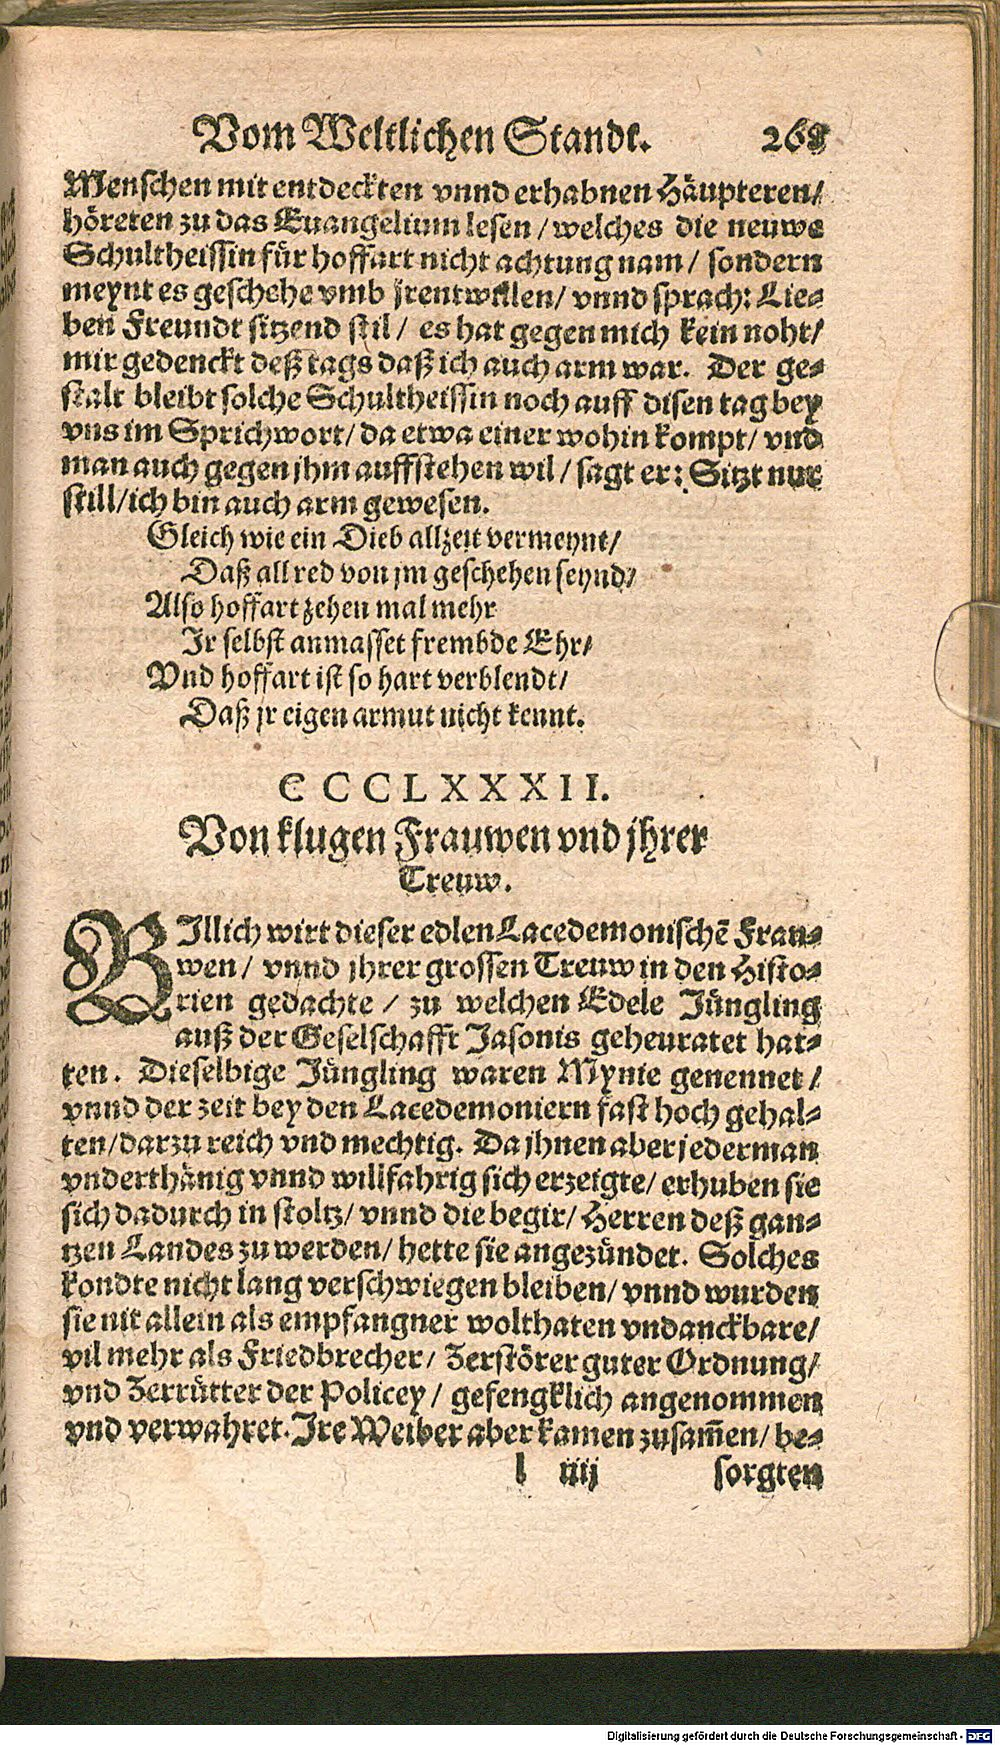 Vom Weltlichen Standt. 268
Menschen mit entdeckten vnnd erhabnen Häupteren/
höreten zu das Euangelium lesen / welches die neuwe
Schultheissin für hoffart nicht achtung nam / sondern
meynt es geschehe vmb jrentwillen / vnnd sprach: Lie-
ben Freundt sitzend stil / es hat gegen mich kein noht/
mir gedenckt deß tags daß ich auch arm war. Der ge-
stalt bleibt solche Schultheissin noch auff disen tag bey
vns im Sprichwort / da etwa einer wohin kompt / vnd
man auch gegen jhm auffstehen wil / sagt er: Sitzt nur
still / ich bin auch arm gewesen.
Gleich wie ein Dieb allzeit vermeynt/
Daß all red von jm geschehen seynd/
Also hoffart zehen mal mehr
Jr selbst anmasset frembde Ehr/
Vnd hoffart ist so hart verblendt/
Daß jr eigen armut nicht kennt.
CCCLXXXII.
Von klugen Frauwen vnd jhrer
Treuw.
BIllich wirt dieser edlen Lacedemonischẽ Frau-
wen / vnnd jhrer grossen Treuw in den Histo-
rien gedachte / zu welchen Edele Jüngling
auß der Geselschafft Jasonis geheuratet hat-
ten. Dieselbige Jüngling waren Mynie genennet /
vnnd der zeit bey den Lacedemoniern fast hoch gehal-
ten / darzu reich vnd mechtig. Da jhnen aber jederman
vnderthänig vnnd willfahrig sich erzeigte / erhuben sie
sich dadurch in stoltz / vnnd die begir / Herren deß gan-
tzen Landes zu werden / hette sie angezündet. Solches
kondte nicht lang verschwiegen bleiben / vnnd wurden
sie nit allein als empfangner wolthaten vndanckbare/
vil mehr als Friedbrecher / Zerstörer guter Ordnung/
vnd Zerrütter der Policey / gefengklich angenommen
vnd verwahret. Jre Weiber aber kamen zusam̃en / be-
l iiij sorgten
Digitalisierung gefördert durch die Deutsche Forschungsgemeinschaft - DFG